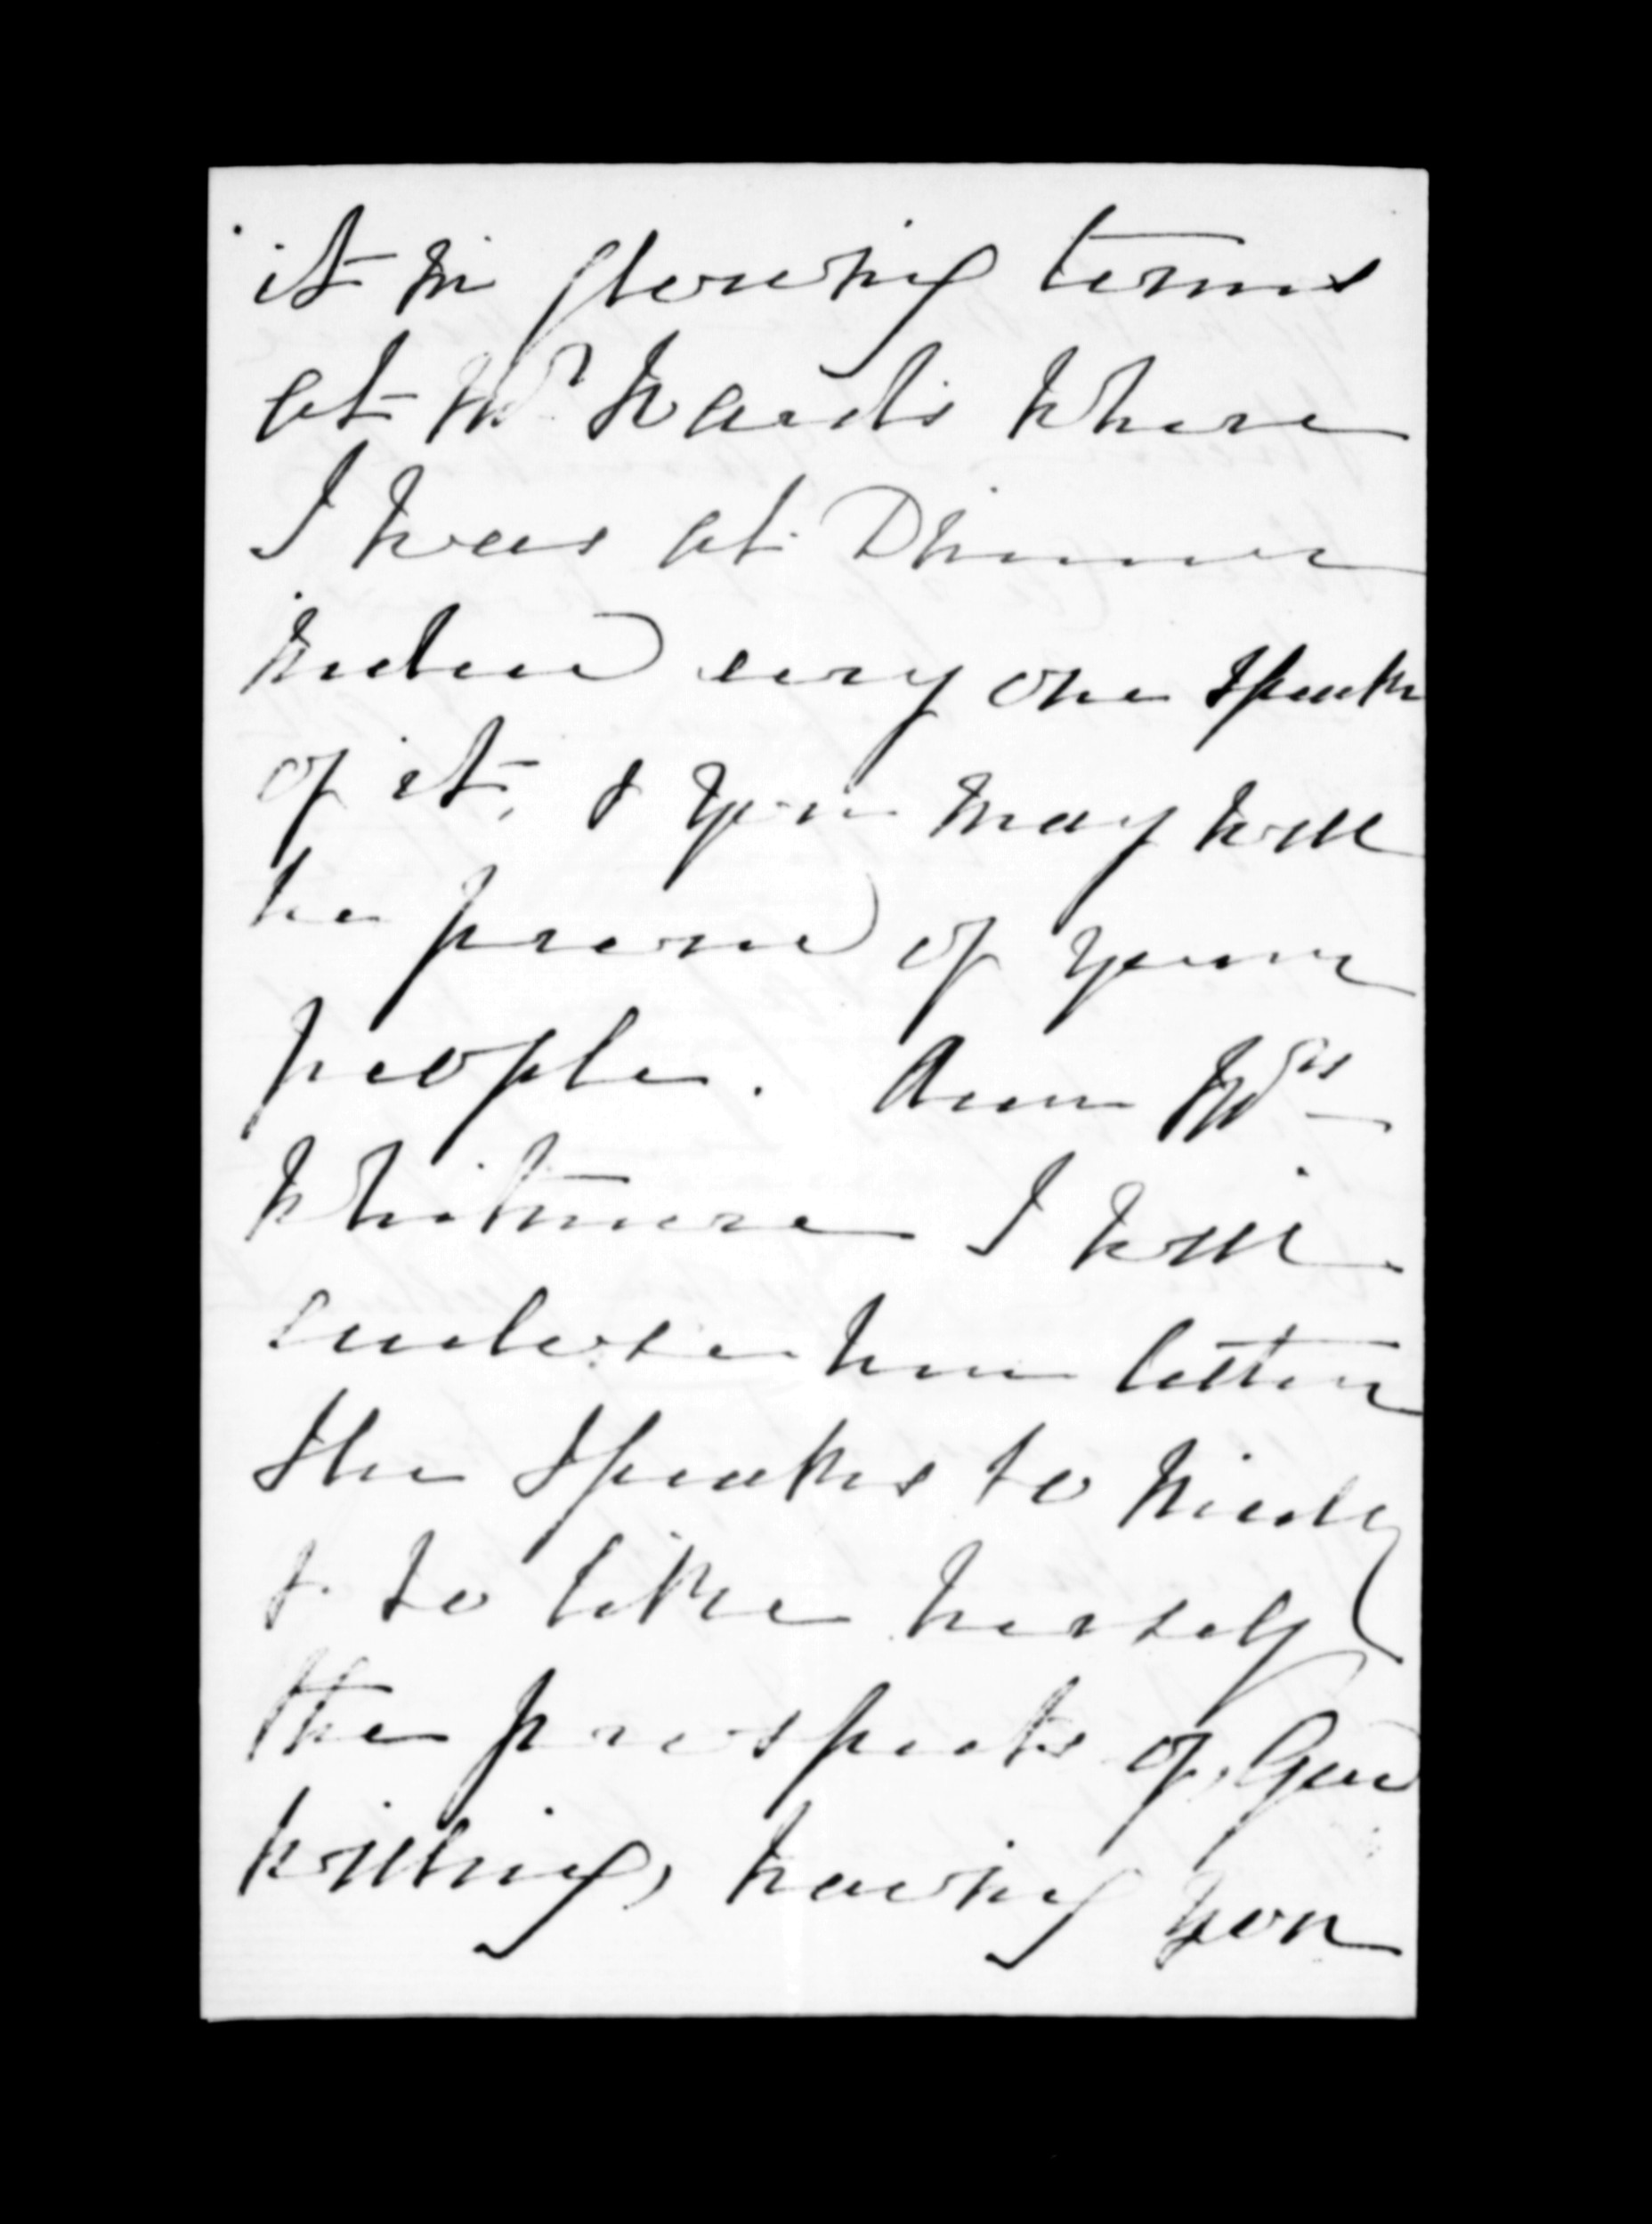 it in glowing terms
at Mr Wards where
I was at Dinner
indeed every one speaks
of it, & you may well
be proud of your
people. Dear Mrs
Whitmore I will
enclose her letter
she speaks so kindly
& so like herself
the prospects of, God
willing, having you